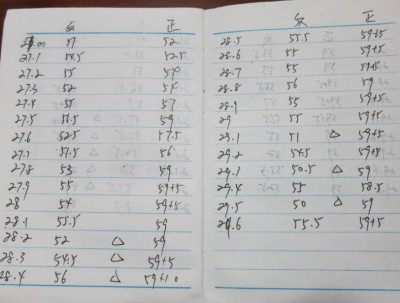 反 正
27.00 57 52
27.1 54.5 52.5
27.2 55 54
27.3 52 54
27.4 55 57
27.5 51.5 △ 59
27.6 52.5 △ 57.5
27.7 57.5 △ 56
27.8 53 △ 59
27.9 55 59+5
28 54 59+5
28.1 55.5 59
28.2 52 △ 59
28.3 54.5 △ 59+5
28.4 56 △ 59+10
反 正
28.5 55.5 59+5
28.6 55 59+5
28.7 55 59+5
28.8 56 59
28.9 55 59+5
29 55 59+5
29.1 51 △ 59+5
29.2 54.5 59+5
29.3 50.5 △ 59
29.4 55 58.5
29.5 50 △ 59
29.6 55.5 59+5